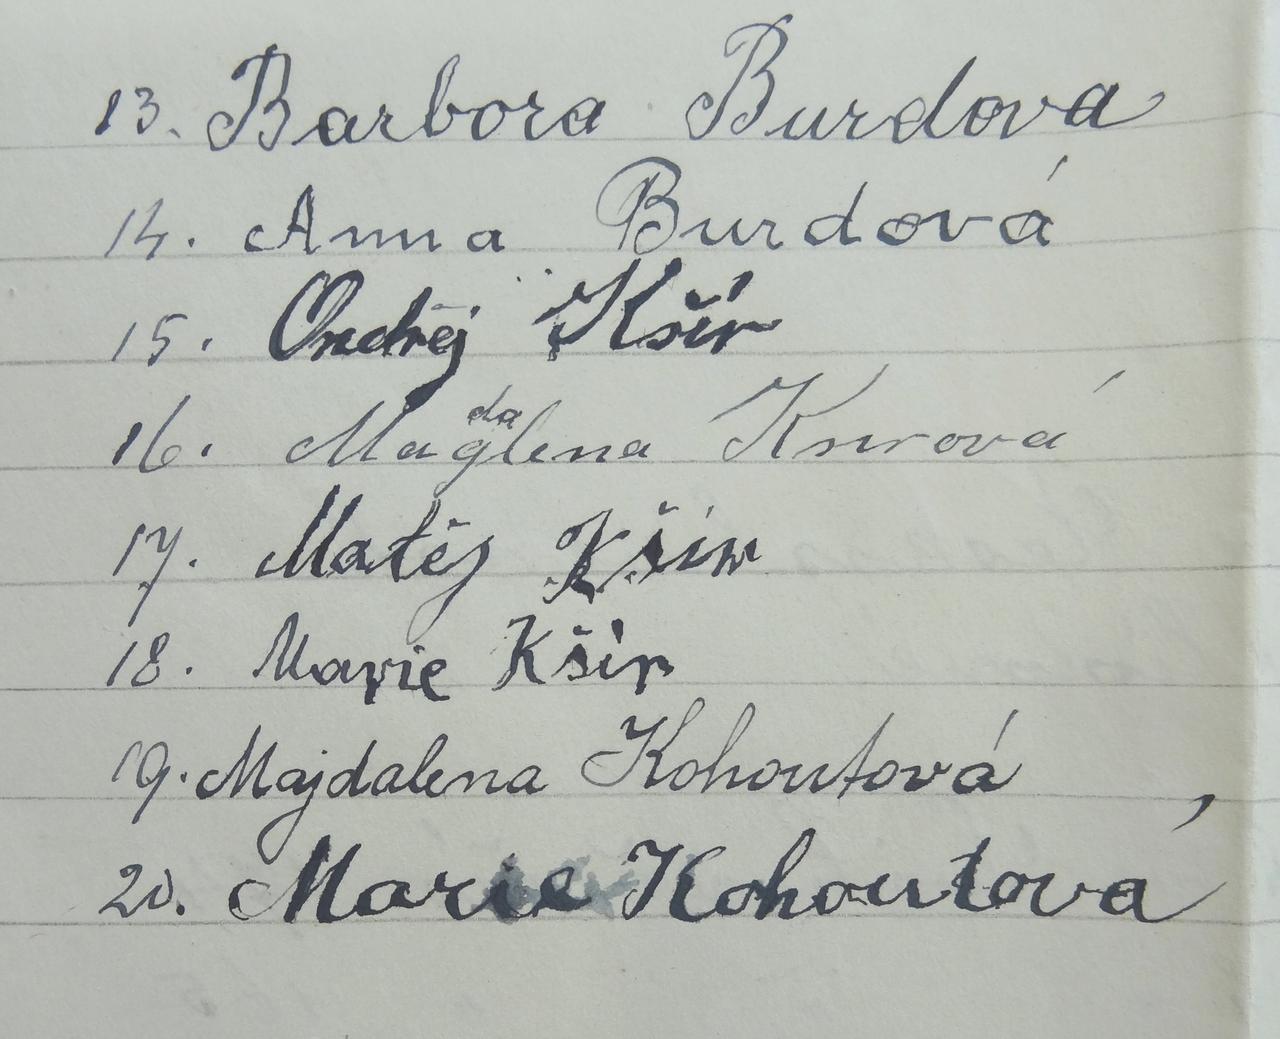 13. Barbora Burdova
14. Anna Burdová
15. Ondřej Kšír
16. Magdalena Ksirová
17. Matěj Kšír
18. Marie Kšír
19. Majdalena Kohoutová
20. Marie Kohoutová